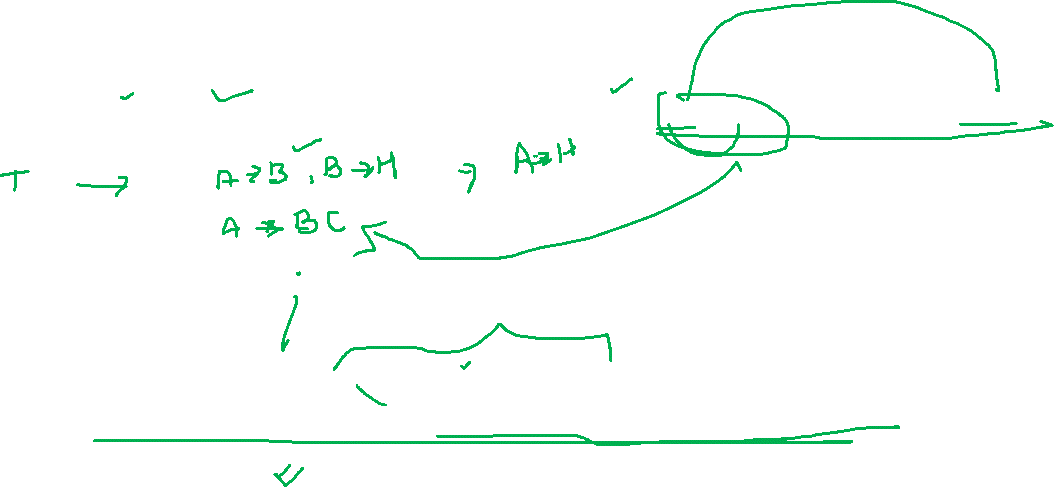 T → A → B , B → H , A → H
A → BC